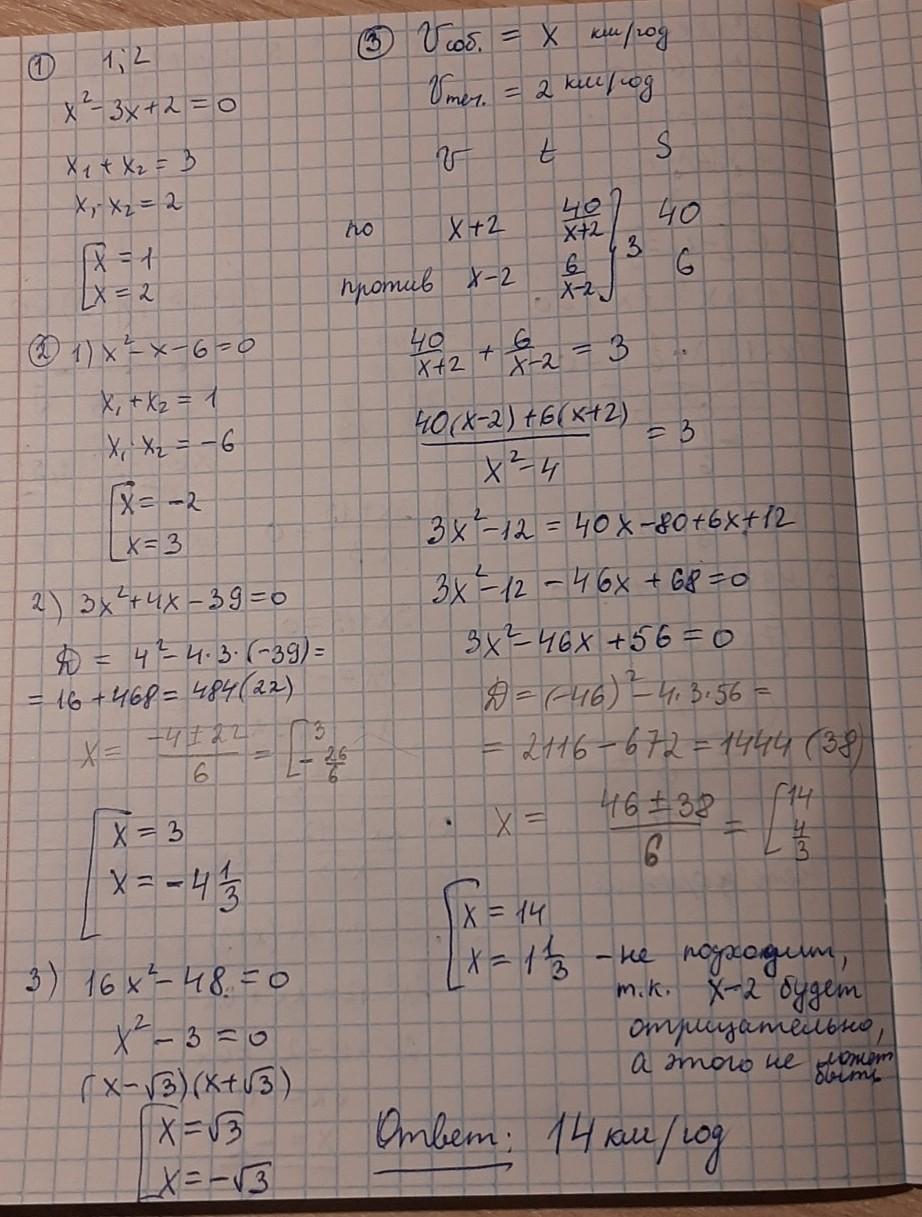 ① 1; 2
x² - 3x + 2 = 0
x₁ + x₂ = 3
x₁ · x₂ = 2
x = 1
x = 2
② 1) x² - x - 6 = 0
x₁ + x₂ = 1
x₁ · x₂ = -6
x = -2
x = 3
2) 3x² + 4x - 39 = 0
D = 4² - 4·3·(-39) =
= 16 + 468 = 484 (22)
x = (-4 ± 22)/6 = [3; -26/6
x = 3
x = -4 1/3
3) 16x² - 48 = 0
x² - 3 = 0
(x - √3)(x + √3)
x = √3
x = -√3
③ Vсоб. = x км/год
Vтеч. = 2 км/год
V t S
по x+2 40/(x+2) 40
3
против x-2 6/(x-2) 6
40/(x+2) + 6/(x-2) = 3
(40(x-2) + 6(x+2))/(x² - 4) = 3
3x² - 12 = 40x - 80 + 6x + 12
3x² - 12 - 46x + 68 = 0
3x² - 46x + 56 = 0
D = (-46)² - 4·3·56 =
= 2116 - 672 = 1444 (38)
x = (46 ± 38)/6 = [14; 4/3
x = 14
x = 1 1/3 - не подходит,
т.к. x-2 будет
отрицательно,
а этого не может
быть
Ответ: 14 км/год